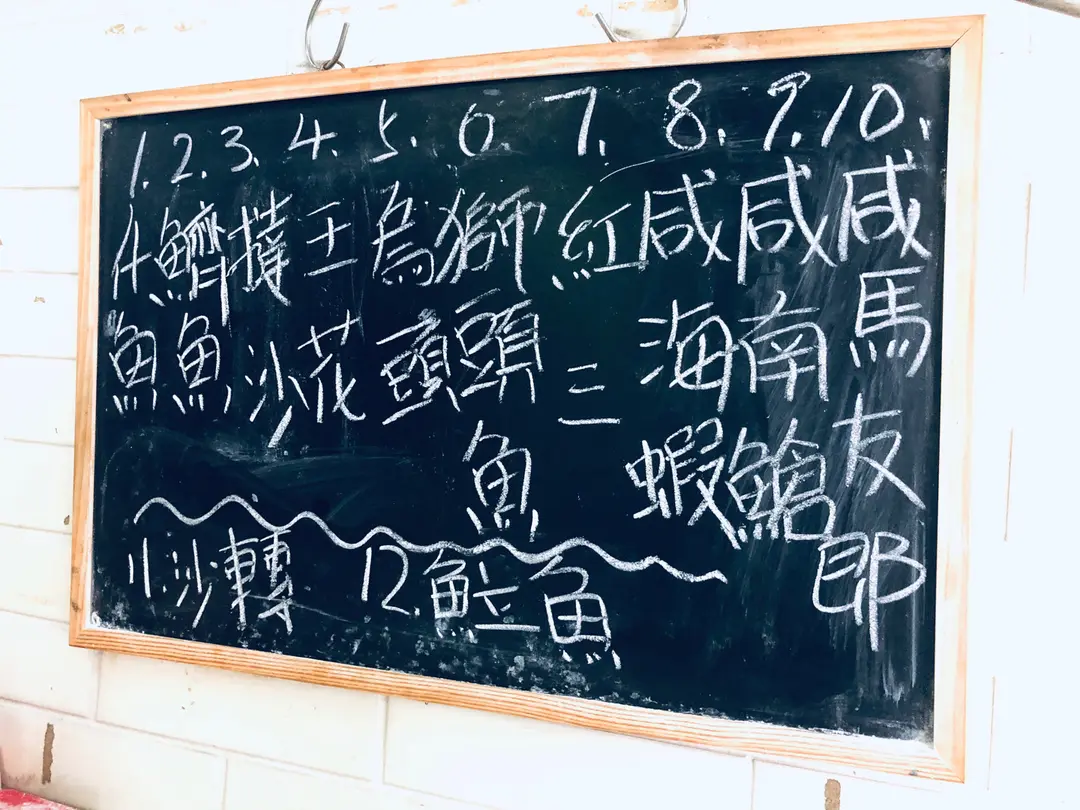 1. 什魚
2. 鱭魚
3. 撻沙
4. 王花
5. 烏頭
6. 獅頭魚
7. 紅三
8. 咸海蝦
9. 咸南䱽
10. 咸馬友郎
11. 沙轉
12. 𩶘魚